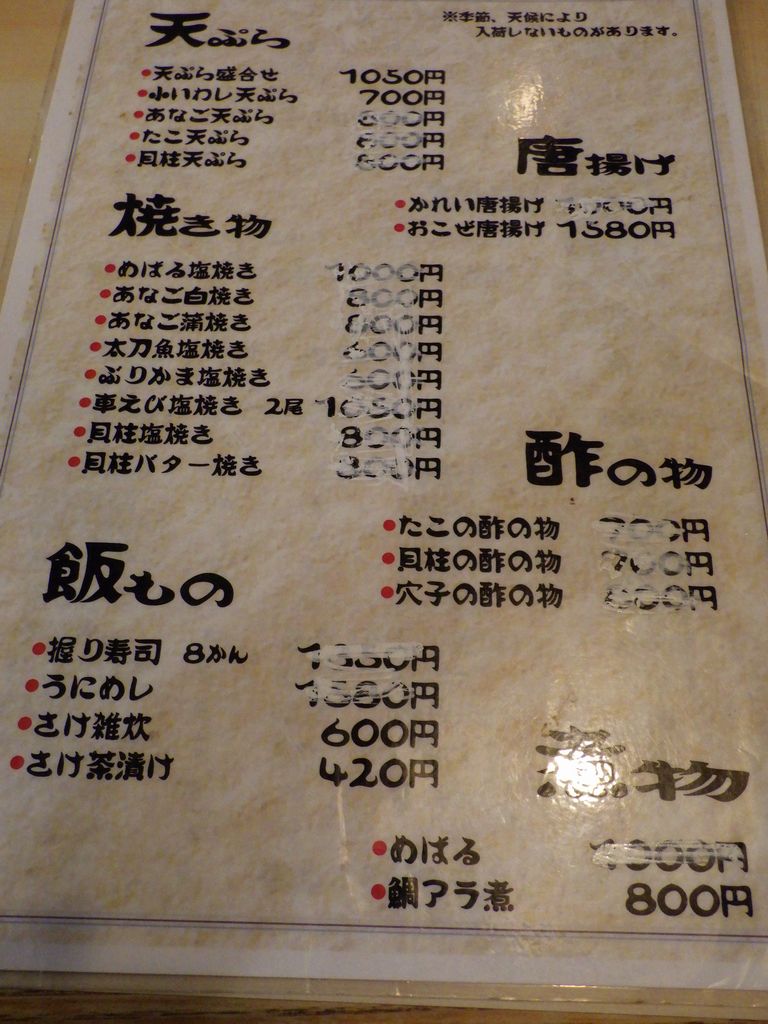 天ぷら
※季節、天候により
入荷しないものがあります。
•天ぷら盛合せ 1050円
•小いわし天ぷら 700円
•あなご天ぷら 800円
•たこ天ぷら 600円
•貝柱天ぷら 800円
唐揚げ
•かれい唐揚げ 円
•おこぜ唐揚げ 1580円
焼き物
•めばる塩焼き 1000円
•あなご白焼き 800円
•あなご蒲焼き 800円
•太刀魚塩焼き 600円
•ぶりかま塩焼き 600円
•車えび塩焼き 2尾 1050円
•貝柱塩焼き 800円
•貝柱バター焼き 800円
酢の物
•たこの酢の物 700円
•貝柱の酢の物 700円
•穴子の酢の物 800円
飯もの
•握り寿司 8かん 円
•うにめし 1580円
•さけ雑炊 600円
•さけ茶漬け 420円
煮物
•めばる 1000円
•鯛アラ煮 800円